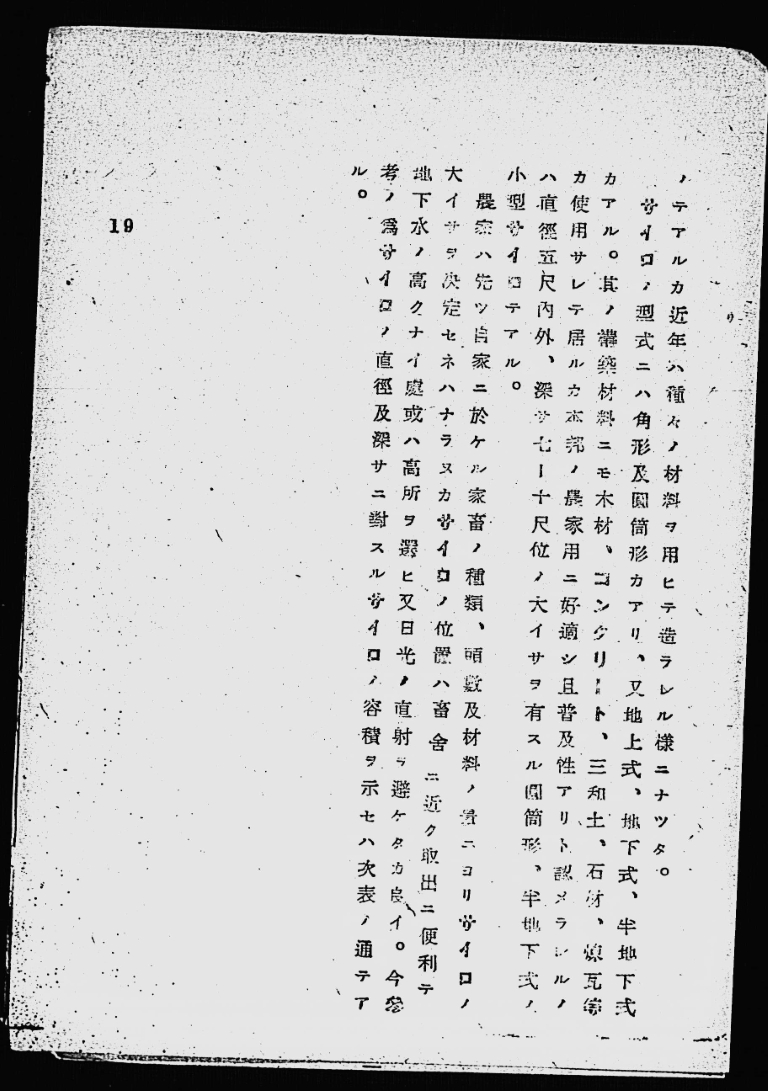 ノテアルカ近年ハ種々ノ材料ヲ用ヒテ造ラレル様ニナツタ。
サイロノ型式ニハ角形及圓筒形カアリ、又地上式、地下式、半地下式
カアル。其ノ構築材料ニモ木材、コンクリート、三和土、石材、煉瓦等
カ使用サレテ居ルカ本邦ノ農家用ニ好適シ且普及性アリト認メラレルノ
ハ直徑五尺內外、深サ七ー十尺位ノ大イサヲ有スル圓筒形、半地下式ノ
小型サイロテアル。
農家ハ先ツ自家ニ於ケル家畜ノ種類、頭數及材料ノ量ニヨリサイロノ
大イサヲ決定セネハナラヌカサイロノ位置ハ畜舍ニ近ク取出ニ便利テ
地下水ノ高クナイ處或ハ高所ヲ選ヒ又日光ノ直射ヲ避ケタカ良イ。今參
考ノ爲サイロノ直徑及深サニ對スルサイロノ容積ヲ示セハ次表ノ通テア
ル。
19